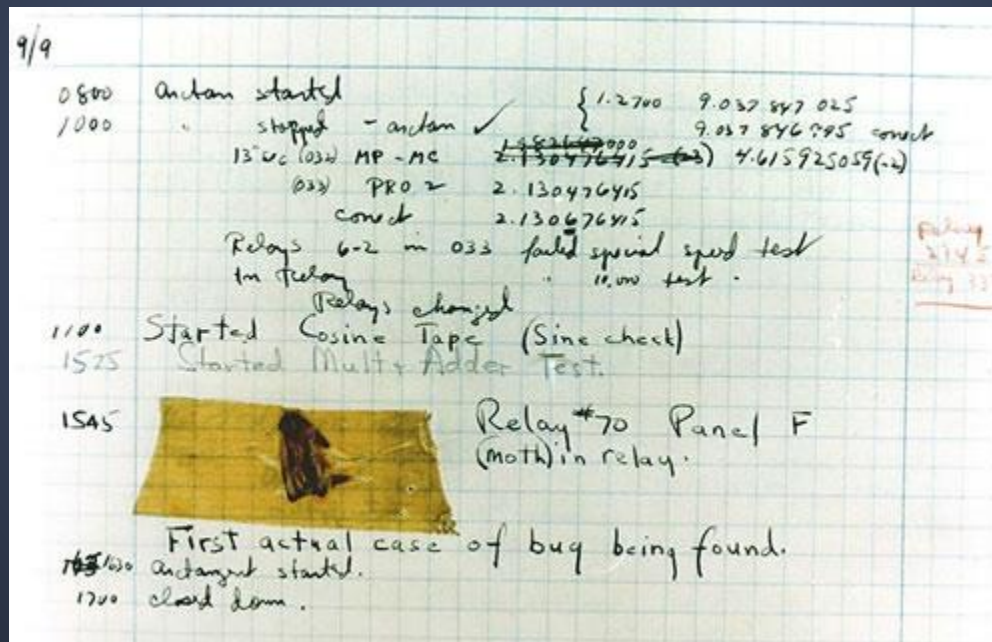 9/9
0800 antan started
1000 " stopped - antan ✓ { 1.2700 9.037 847 025
9.037 846 795 conect
13"uc (032) MP - MC 2.130476415 (-3) 4.615925059(-2)
(033) PRO 2 2.130476415
conect 2.130676415
Relays 6-2 in 033 failed special speed test
In relay " 10.000 test .
Relays changed
1100 Started Cosine Tape (Sine check)
1525 Started Mult + Adder Test.
1545 Relay #70 Panel F
(moth) in relay.
First actual case of bug being found.
1630 antangent started.
1700 closed down.
Relay
2145
Relay 337